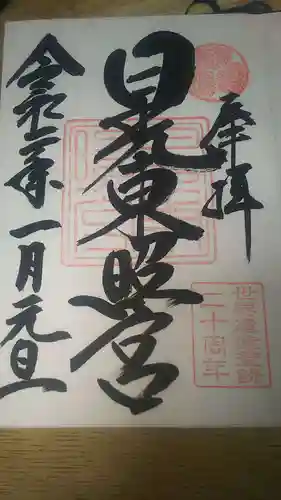 奉拝
日光東照宮
令和二年一月元旦
世界遺産登録
二十周年